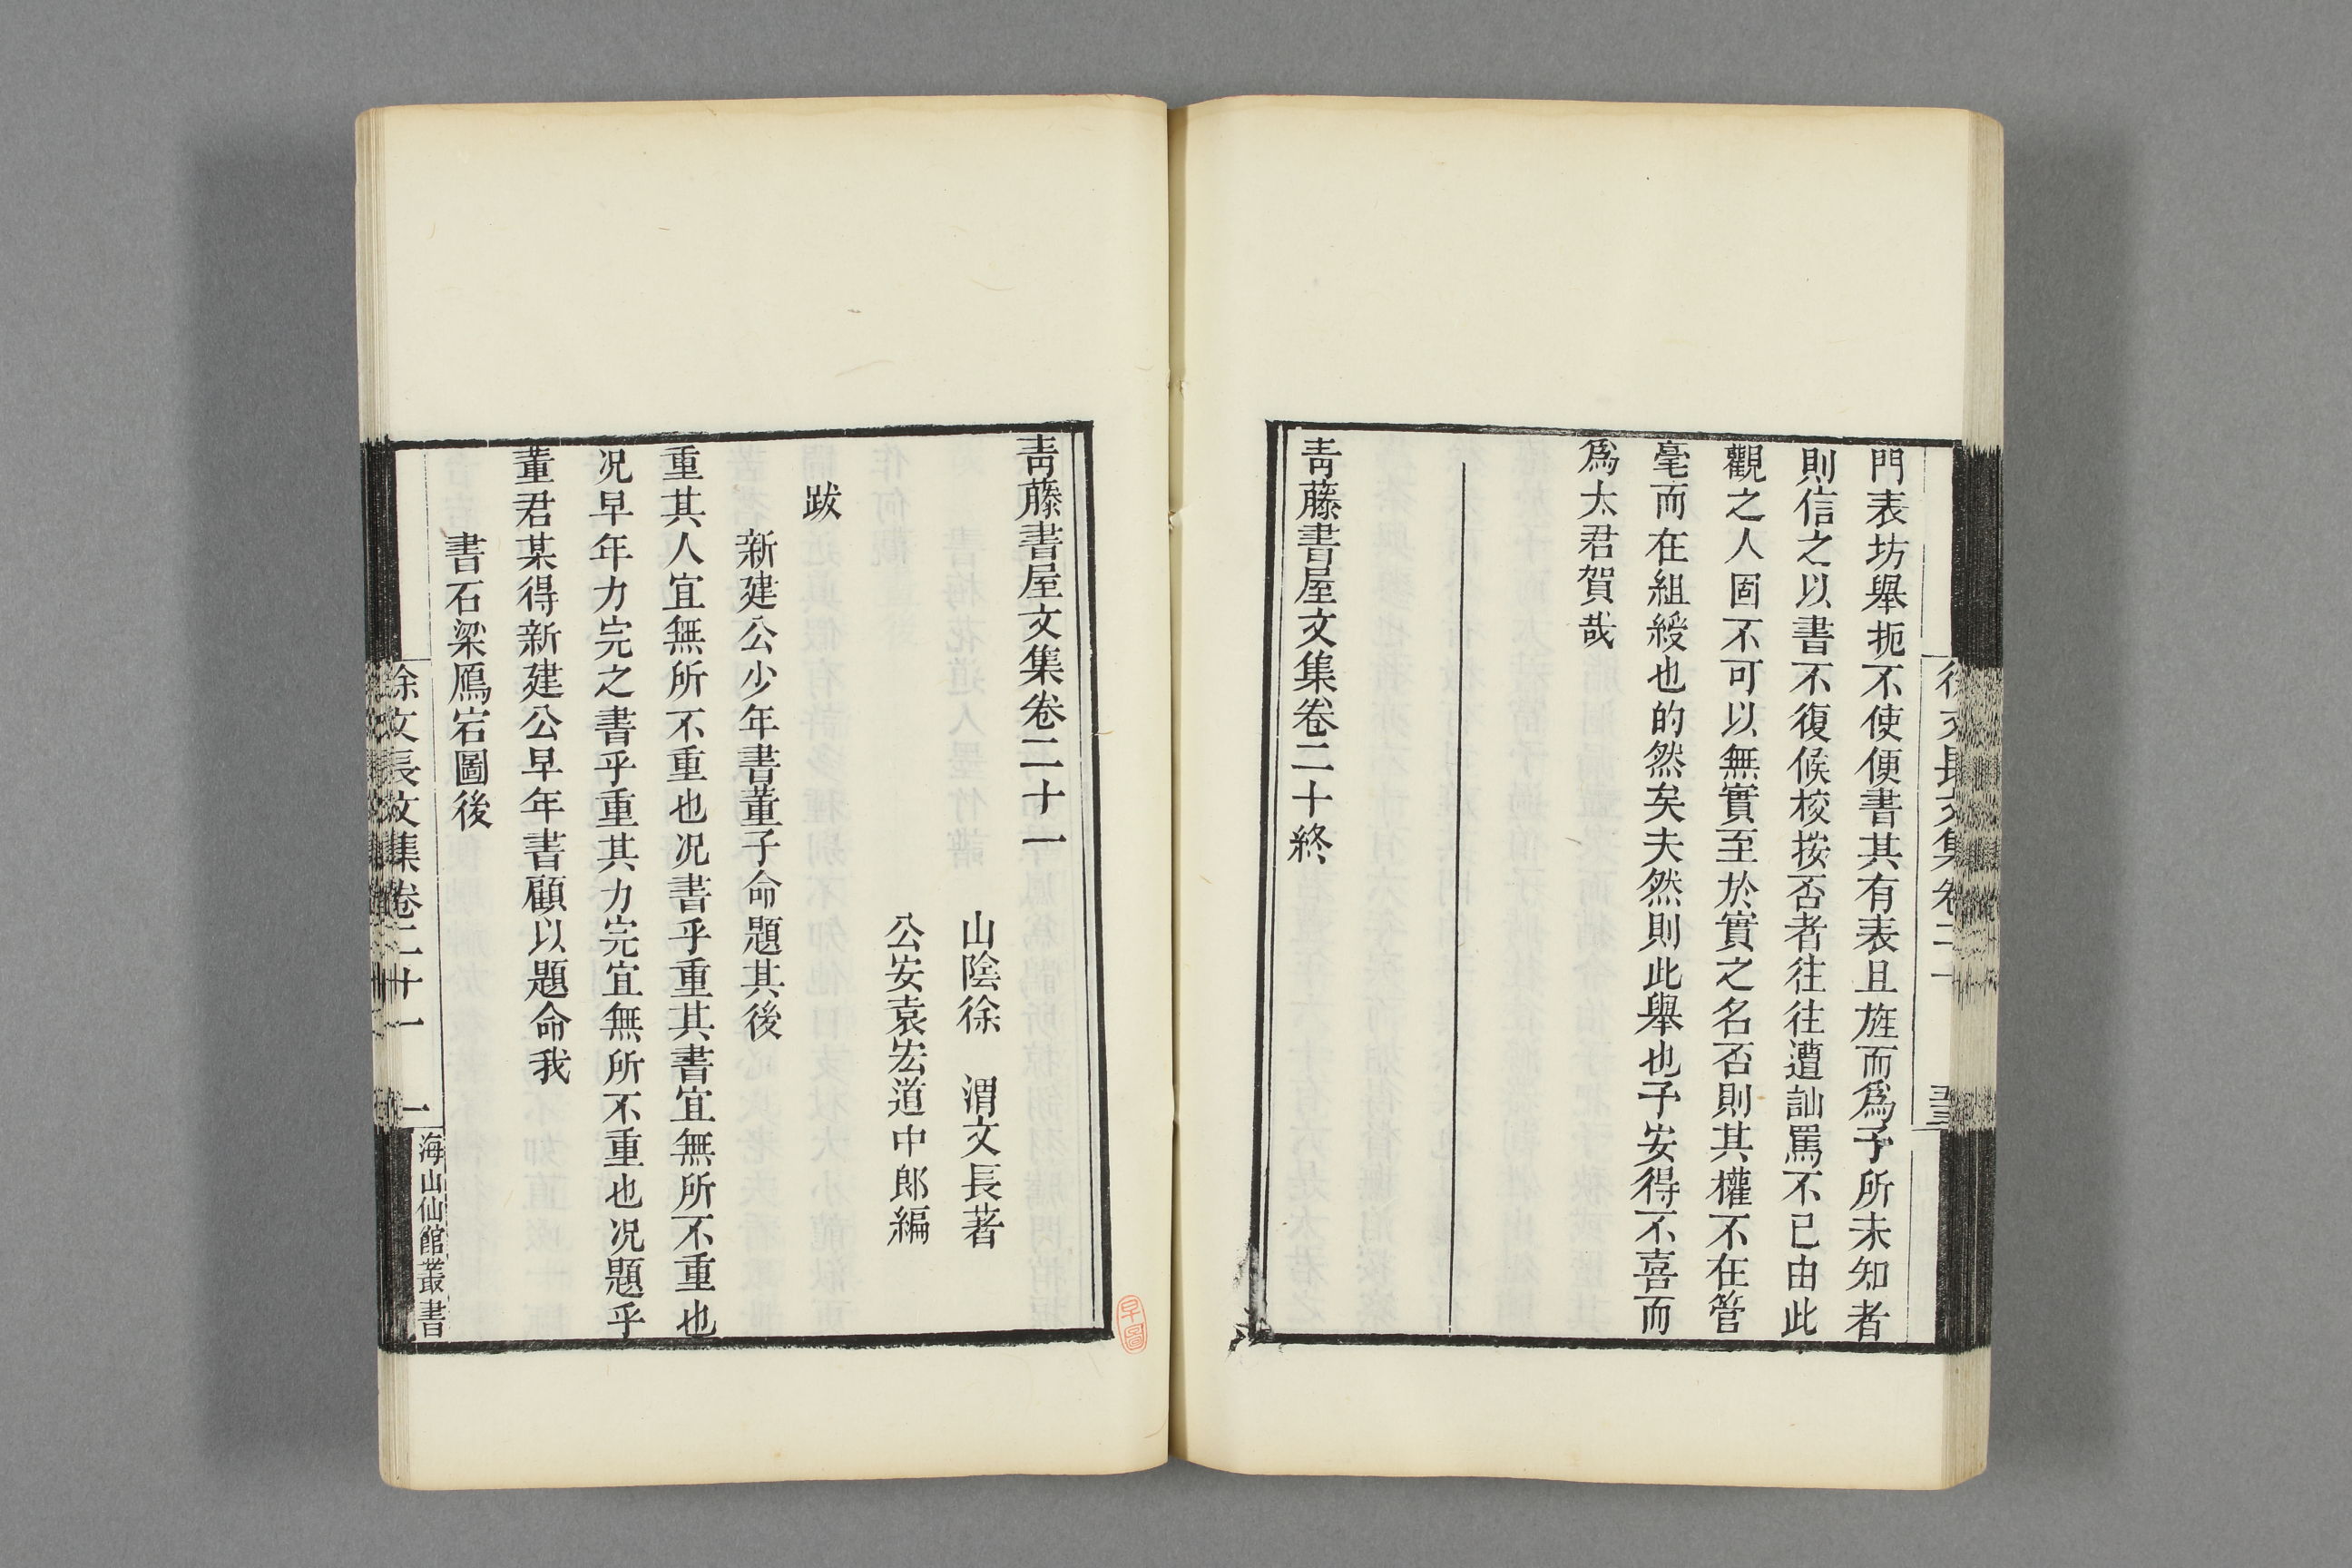 門表坊舉扼不使便書其有表且旌而爲予所未知者
則信之以書不復候核按否者往往遭訕罵不已由此
觀之人固不可以無實至於實之名否則其權不在管
毫而在組綬也的然矣夫然則此舉也予安得不喜而
爲太君賀哉
青藤書屋文集卷二十終
青藤書屋文集卷二十一
山陰徐　渭文長著
公安袁宏道中郎編
跋
新建公少年書董子命題其後
重其人宜無所不重也况書乎重其書宜無所不重也
况早年力完之書乎重其力完宜無所不重也况題乎
董君某得新建公早年書顧以題命我
書石梁鴈宕圖後
徐文長文集卷二十一
一
海山仙館叢書
早圖